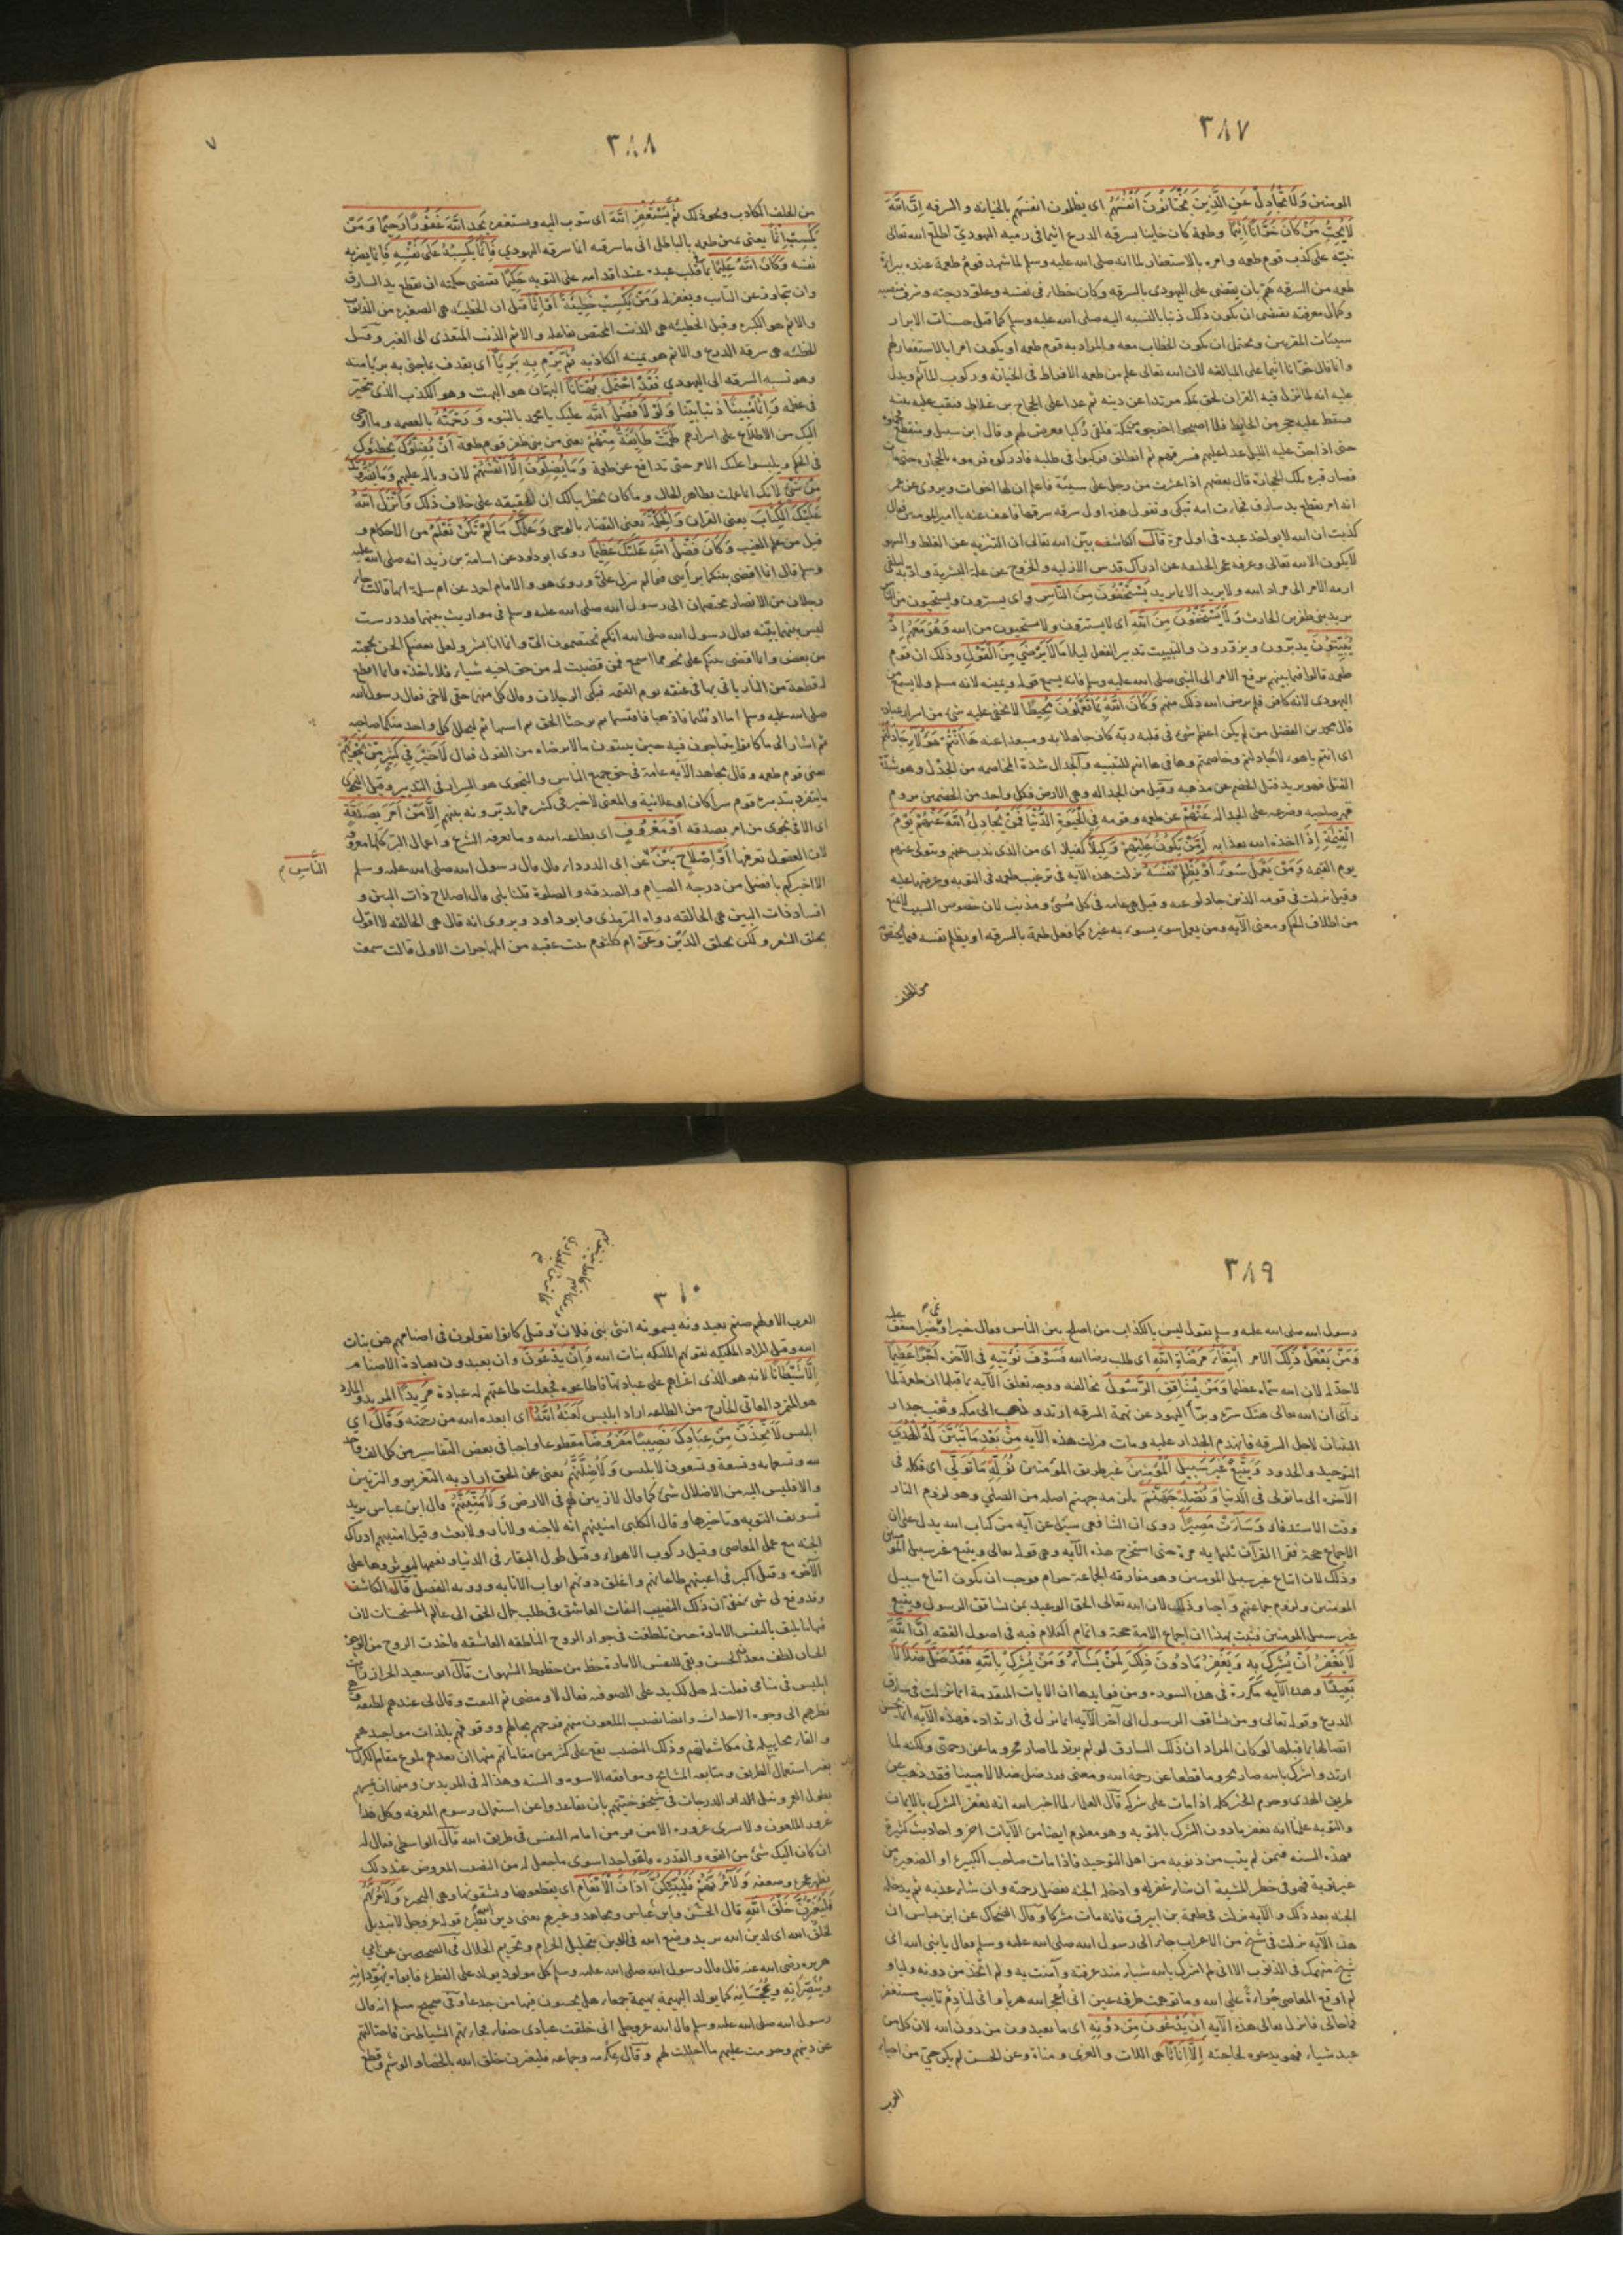 ٣٨٧
المومنين وَلَا تُجَادِلْ عَنِ الَّذِينَ يَخْتَانُونَ أَنْفُسَهُمْ اى يظلمون انفسهم بالخيانه و السرقه اِنَّ اللّٰهَ
لَا يُحِبُّ مَنْ كَانَ خَوَّانًا اَثِيمًا وطعمة كان خاينا بسرقه الدرع اثيما فى رميه اليهودىّ اطلع الله تعالى
نبيّه على كذب قوم طعمه وامره بالاستغفار لما انه صلى الله عليه وسلم لما شهد قوم طعمة عنده ببراة
طعمه من السرقه همّ بان يقضى على اليهودى بالسرقه وكان خطا فى نفسه وعلو درجته وشرف
وكمال معرفته يقتضى ان يكون ذلك ذنبا بالنسبه اليه صلى الله عليه وسلم كما قيل حسنات الابرار
سيئات المقربين ويحتمل ان يكون الخطاب معه والمراد به قوم طعمه او يكون امرا بالاستغفار لهم
وانما قال خوّانا اثيما على المبالغه لان الله تعالى علم من طعمه الافراط فى الخيانه وركوب المآثم ويدل
عليه انه لما نزل فيه القران لحق بمكه مرتدا عن دينه ثم عدا على الحجاج بن علاط فنقب عليه بيته
فسقط عليه حجر من الحايط فلما اصبحوا اخرجوه من مكة فلقى ركبا فعرض لهم وقال ابن سبيل ومنقطع
حتى اذا جنّ عليه الليل عدا عليهم فسرقهم ثم انطلق فركبوا فى طلبه فادركوه فرموه بالحجاره حتى مات
فصار قبره تلك الحجارة قال بعضهم اذا عثرت من رجل على سيئة فاعلم ان لها اخوات ويروى عن عمر
انه امر بقطع يد سارق فجات امه تبكى وتقول هذه اول سرقه سرقها فاعف عنه يا امير المومنين فقال
كذبت ان الله لا يواخذ عبده فى اول مرة قال الكاشف بيّن الله تعالى ان التنزيه عن الغلط والسهو
لا يكون الا لله تعالى وعرفه عجز الخليقه عن ادراك قدس الازليه والخروج عن علة البشرية وادّبه
الامر الى مراد الله ولا يريد الا ما يريد يَسْتَخْفُونَ مِنَ النَّاسِ واى يسترون ويستحيون من الناس
يريد بنى ظفر بن الحارث وَلَا يَسْتَخْفُونَ مِنَ اللّٰهِ اى لا يستترون ولا يستحيون من الله وَهُوَ مَعَهُمْ اِذْ
يُبَيِّتُونَ يدبّرون ويزوّرون والتبييت تدبير الفعل ليلا مَا لَا يَرْضَىٰ مِنَ الْقَوْلِ وذلك ان قوم
طعمه قالوا فيما بينهم نرفع الامر الى النبى صلى الله عليه وسلم فانه يسمع قوله ويمينه لانه مسلم ولا يسمع
اليهودى لانه كافر فلم يرض الله ذلك منهم وَكَانَ اللّٰهُ بِمَا تَعْمَلُونَ مُحِيطًا لا يخفى عليه شىء من اسرار عباده
قال محمد بن الفضل من لم يكن اعظم شى فى قلبه ربّه كان جاهلا به ومبعدا عنه هَا اَنْتُمْ هَؤُلَاءِ جَادَلْتُمْ
اى انتم يا هولاء جادلتم وخاصمتم وها فى ها انتم للتنبيه والجدال شدة المخاصمه من الجدل وهو شدّة
الفتل فهو يريد فتل الخصم عن مذهبه وقيل من الجداله وهى الارض فكل واحد من الخصمين يروم
قهر صاحبه وصرعه على الجداله عَنْهُمْ عن طعمه وقومه فِى الْحَيٰوةِ الدُّنْيَا فَمَنْ يُجَادِلُ اللّٰهَ عَنْهُمْ يَوْمَ
الْقِيٰمَةِ اِذَا اخذه الله بعذابه اَمْ مَنْ يَكُونُ عَلَيْهِمْ وَكِيلًا كفيلا اى من الذى يذب عنهم ويتولى عنهم
يوم القيمه وَمَنْ يَعْمَلْ سُوءًا اَوْ يَظْلِمْ نَفْسَهُ نزلت هذه الآيه فى ترغيب طعمه فى التوبه وعرضها عليه
وقيل نزلت فى قومه الذين جادلو عنه وقيل هى عامه فى كل مُسئ ومذنب لان خصوص السبب لا يمنع
من اطلاق الحكم ومعنى الآيه ومن يعمل سوءا يسوء به غيره كما فعل طعمة بالسرقه او يظلم نفسه
من الحلف
٣٨٨
٧
من الحلف الكاذب ونحو ذلك ثُمَّ يَسْتَغْفِرِ اللّٰهَ اى يتوب اليه ويستغفره يَجِدِ اللّٰهَ غَفُورًا رَحِيمًا وَمَنْ
يَكْسِبْ اِثْمًا يعنى يمين طعمه بالباطل انى ما سرقته انما سرقه اليهودى فَاِنَّمَا يَكْسِبُهُ عَلَى نَفْسِهِ فانما يضر به
نفسه وَكَانَ اللّٰهُ عَلِيمًا بما فى قلب عبده عند اقدامه على التوبه حَكِيمًا تقتضى حكمته ان تقطع يد السارق
وان يتجاوز عن التايب ويغفر له وَمَنْ يَكْسِبْ خَطِيئَةً اَوْ اِثْمًا قيل ان الخطيئه هى الصغيره من الذنوب
والاثم هو الكبيره وقيل الخطيئه هى الذنب المختص بفاعله والاثم الذنب المتعدى الى الغير وقيل
الخطيئه هى سرقه الدرع والاثم هو يمينه الكاذبه ثُمَّ يَرْمِ بِهِ بَرِيًّا اى يقذف بما جنى به بريّا منه
وهو نسبه السرقه الى اليهودى فَقَدِ احْتَمَلَ بُهْتَانًا البهتان هو البهت وهو الكذب الذى يتحيّر
فى عظمه وَاِثْمًا مُبِينًا ذنبا بيّنا وَلَوْلَا فَضْلُ اللّٰهِ عليك يا محمد بالنبوه وَرَحْمَتُهُ بالعصمه وما اوحى
اليك من الاطلاع على اسرارهم لَهَمَّتْ طَائِفَةٌ مِنْهُمْ يعنى من بنى ظفر قوم طعمة اَنْ يُضِلُّوكَ يخطئوك
فى الحكم ويلبسوا عليك الامر حتى تدافع عن طعمة وَمَا يُضِلُّونَ اِلَّا اَنْفُسَهُمْ لان وباله عليهم وَمَا يَضُرُّونَكَ
مِنْ شَىْءٍ لانك انما عملت بظاهر الحال وما كان يخطر ببالك ان الحقيقه على خلاف ذلك وَاَنْزَلَ اللّٰهُ
عَلَيْكَ الْكِتَابَ يعنى القران وَالْحِكْمَةَ يعنى القضاء بالوحى وَعَلَّمَكَ مَا لَمْ تَكُنْ تَعْلَمُ من الاحكام و
قيل من علم الغيب وَكَانَ فَضْلُ اللّٰهِ عَلَيْكَ عَظِيمًا روى ابو داود عن اسامة بن زيد انه صلى الله عليه
وسلم قال انما اقضى بينكما برأيى فيما لم ينزل علىّ وروى هو والامام احمد عن ام سلمة انها قالت جاء
رجلان من الانصار يختصمان الى رسول الله صلى الله عليه وسلم فى مواريث بينهما قد درست
ليس بينهما بيّنه فقال رسول الله صلى الله انكم تختصمون الىّ وانما انا بشر ولعل بعضكم الحن بحجته
من بعض وانما اقضى بينكم على نحو مما اسمع فمن قضيت له من حق اخيه شيا فلا ياخذه فانما اقطع
له قطعة من النار ياتى بها فى عنقه يوم القيمه فبكى الرجلان وقال كل منهما حقى لاخى فقال رسول الله
صلى الله عليه وسلم اما اذ قلتما فاذهبا فاقتسما ثم توخيا الحق ثم استهما ثم ليحلل كل واحد منكما صاحبه
ثم اشار الى ما كانوا يتناجون فيه حين يبيتون ما لا يرضاه من القول فقال لَا خَيْرَ فِى كَثِيرٍ مِنْ نَجْوَيٰهُمْ
يعنى قوم طعمه وقال مجاهد الآيه عامة فى حق جميع الناس والنجوى هو السرار فى التدبير وقيل النجوى
ما يتفرد بتدبيره قوم سرا كان او علانية والمعنى لا خير فى كثير مما يدبرونه بينهم اِلَّا مَنْ اَمَرَ بِصَدَقَةٍ
اى الا فى نجوى من امر بصدقه اَوْ مَعْرُوفٍ اى بطاعه الله وما يعرفه الشرع واعمال البر كلها معروف
لان العقول تعرفها اَوْ اِصْلَاحٍ بَيْنَ عن ابى الدرداء قال قال رسول الله صلى الله عليه وسلم
النَّاسِ م
الا اخبركم بافضل من درجه الصيام والصدقه والصلوة قلنا بلى قال اصلاح ذات البين و
افساد ذات البين هى الحالقه رواه الترمذى وابو داود ويروى انه قال هى الحالقه لا اقول
تحلق الشعر ولكن تحلق الدّين وعن ام كلثوم بنت عقبه من المهاجرات الاول قالت سمعت
٣٨٩
رسول الله صلى الله عليه وسلم يقول ليس بالكذاب من اصلح بين الناس فقال خيرا او نمى خيرا متفق عليه
وَمَنْ يَفْعَلْ ذٰلِكَ الامر ابْتِغَاءَ مَرْضَاةِ اللّٰهِ اى طلب رضا الله فَسَوْفَ نُؤْتِيهِ فى الآخره اَجْرًا عَظِيمًا
لا حد له لان الله سماه عظيما وَمَنْ يُشَاقِقِ الرَّسُولَ يخالفه ووجه تعلق الآيه بما قبلها ان طعمة لما
رآى ان الله تعالى هتك ستره وبرّأ اليهود عن تهمة السرقه ارتد وذهب الى مكه ونقب جدار
انسان لاجل السرقه فانهدم الجدار عليه ومات فنزلت هذه الآيه مِنْ بَعْدِ مَا تَبَيَّنَ لَهُ الْهُدَى
التوحيد والحدود وَيَتَّبِعْ غَيْرَ سَبِيلِ الْمُؤْمِنِينَ غير طريق المؤمنين نُوَلِّهِ مَا تَوَلَّى اى نكله فى
الآخره الى ما تولى فى الدنيا وَنُصْلِهِ جَهَنَّمَ يلزمه جهنم اصله من الصلى وهو لزوم النار
وقت الاستدفاء وَسَاءَتْ مَصِيرًا روى ان الشافعى سئل عن آيه من كتاب الله يدل على ان
الاجماع حجة فقرا القرآن ثلثمايه مرة حتى استخرج هذه الآيه وهى قوله تعالى ويتبع غير سبيل المؤمنين
وذلك لان اتباع غير سبيل المومنين وهو مفارقه الجماعه حرام فوجب ان يكون اتباع سبيل
المومنين ولزوم جماعتهم واجبا وذلك لان الله تعالى الحق الوعيد بمن يشاقق الرسول ويتبع
غير سبيل المومنين فثبت بهذا ان اجماع الامة حجة واتمام الكلام فيه فى اصول الفقه اِنَّ اللّٰهَ
لَا يَغْفِرُ اَنْ يُشْرَكَ بِهِ وَيَغْفِرُ مَا دُونَ ذٰلِكَ لِمَنْ يَشَاءُ وَمَنْ يُشْرِكْ بِاللّٰهِ فَقَدْ ضَلَّ ضَلَالًا
بَعِيدًا وهذه الآيه مكررة فى هذه السوره ومن فوايدها ان الايات المتقدمة انما نزلت فى سارق
الدرع وقوله تعالى ومن يشاقق الرسول الى آخر الآيه انما نزل فى ارتداده فهذه الآيه انما يحسن
اتصالها بما قبلها لو كان المراد ان ذلك السارق لو لم يرتد لما صار محروما عن رحمتى ولكنه لما
ارتد واشرك بالله صار محروما قطعا عن رحمة الله ومعنى فقد ضل ضلالا مبينا فقد ذهب عن
طريق الهدى وحرم الخير كله اذا مات على شركه قال العلماء لما اخبر الله انه يغفر الشرك بالايمان
والتوبه علما انه يغفر ما دون الشرك بالتوبه وهو معلوم ايضا من الآيات اخر واحاديث كثيرة
فهذه المشيه فيمن لم يتب من ذنوبه من اهل التوحيد فاذا مات صاحب الكبيره او الصغيره من
غير توبة فهو فى خطر المشية ان شاء غفر له وادخله الجنه بفضل رحمته وان شاء عذبه ثم يدخله
الجنه بعد ذلك والآيه نزلت فى طعمة بن ابيرق فانه مات مشركا وقال الضحاك عن ابن عباس ان
هذه الآيه نزلت فى شيخ من الاعراب جاء الى رسول الله صلى الله عليه وسلم فقال يا نبى الله انى
شيخ منهمك فى الذنوب الا انى لم اشرك بالله شيا منذ عرفته وآمنت به ولم اتخذ من دونه وليا و
لم اوقع المعاصى جُراءةً على الله وما توهمت طرفه عين انى اُعجز الله هربا وانى لنادم تايب مستغفر
فما حالى فانزل تعالى هذه الآيه اِنْ يَدْعُونَ مِنْ دُونِهِ اى ما يعبدون من دون الله لان كل من
عبد شيا فهو يدعوه لحاجته اِلَّا اِنَاثًا هى اللات والعزى ومناة وعن الحسن لم يكن حىّ من احياء
العرب
٣٩٠
العرب الا ولهم صنم يعبدونه يسمونه انثى بنى فلان وقيل كانوا يقولون فى اصنامهم هن بنات
الله وقيل المراد الملئكه لقولهم الملئكه بنات الله وَاِنْ يَدْعُونَ وان يعبدون بعبادة الاصنام
اِلَّا شَيْطَانًا لانه هو الذى اغراهم على عبادتها فاطاعوه فجعلت طاعتهم له عبادة مَرِيدًا المريد والمارد
هو المتمرد العاتى الخارج من الطاعه اراد ابليس لَعَنَهُ اللّٰهُ اى ابعده الله من رحمته وَقَالَ اى
ابليس لَاَتَّخِذَنَّ مِنْ عِبَادِكَ نَصِيبًا مَفْرُوضًا مقطوعا واجبا فى بعض التفاسير من كل الف واحد
لله وتسعمايه وتسعة وتسعون لابليس وَلَاُضِلَّنَّهُمْ يعنى عن الحق اراد به التغرير والتزيين
والا فليس اليه من الاضلال شئ كما قال لازينن لهم فى الارض وَلَاُمَنِّيَنَّهُمْ قال ابن عباس يريد
تسويف التوبه وتاخيرها وقال الكلبى امنيتهم انه لا جنه ولا نار ولا بعث وقيل امنيتهم ادراك
الجنه مع عمل المعاصى وقيل ركوب الاهواء وقيل طول البقاء فى الدنيا ونعيمها ليوثروها على
الآخره وقيل اكبر فى اعينهم طاعاتهم واغلق دونهم ابواب الانابه ورويه الفضل قال الكاشف
وقد وقع لى شى ان ذلك النصيب النفات العاشق فى طلب جمال الحق الى عالم المستحسنات لان
فيها ما يليق بالنفس الامارة حين تلطفت فى جوار الروح الناطقه العاشقه فاخذت الروح من
الحسان لطف معدن الحسن وبقى للنفس الامارة حظ من حظوظ الشهوات قال ابو سعيد الخراز رايت
ابليس فى منامى فقلت له هل لك يد على الصوفيه فقال لا ومضى ثم التفت وقال لى عندهم لطيفه
نظرهم الى وجوه الاحداث وايضا نصيب الملعون منهم فرحهم بحالهم ووقوفهم بلذات مواجيدهم
والقاء مخاييله فى مكاشفاتهم وذلك النصيب يقع على كثير من مقاماتهم منها ان يعدهم بلوغ مقام الكرامات
بغير استعمال الطريق ومتابعه المشايخ وموافقه الاسوه والسنه وهذا له فى المريدين ومنها ان يمنيهم
بطول العمر ونيل الدرجات فى شيخوختهم بان يقاعدوا عن استعمال رسوم المعرفه وكل هذا
غرور الملعون ولا يسرى غروره الا من من امامه النفس فى طريق الله قال الواسطى فقال له
ان كان اليك شئ من القوه والقدره وما سوى ما جعل له من النصيب المفروض عند ذلك
يظهر عجزه وضعفه وَلَاٰمُرَنَّهُمْ فَلَيُبَتِّكُنَّ اٰذَانَ الْاَنْعَامِ اى يقطعونها ويشقونها وهى البحيره وَلَاٰمُرَنَّهُمْ
فَلَيُغَيِّرُنَّ خَلْقَ اللّٰهِ قال الحسن وابن عباس ومجاهد وغيرهم يعنى دين الله نظيره قوله عز وجل لا تبديل
لخلق الله اى لدين الله يريد وضع الله فى الدين بتحليل الحرام وتحريم الحلال فى الصحيحين عن ابى
هريره رضى الله عنه قال قال رسول الله صلى الله عليه وسلم كل مولود يولد على الفطره فابواه يهوّدانه
وَيُنَصِّرَانِهِ وَيُمَجِّسَانِهِ كما يولد البهيمة بهيمة جمعاء هل يحسون فيها من جدعاء وفى صحيح مسلم انه قال
رسول الله صلى الله عليه وسلم قال الله عز وجل انى خلقت عبادى حنفاء فجاءتهم الشياطين فاجتالتهم
عن دينهم وحرمت عليهم ما احللت لهم وقال عكرمه وجماعه فليغيرن خلق الله بالخصاء والوشم وقطع